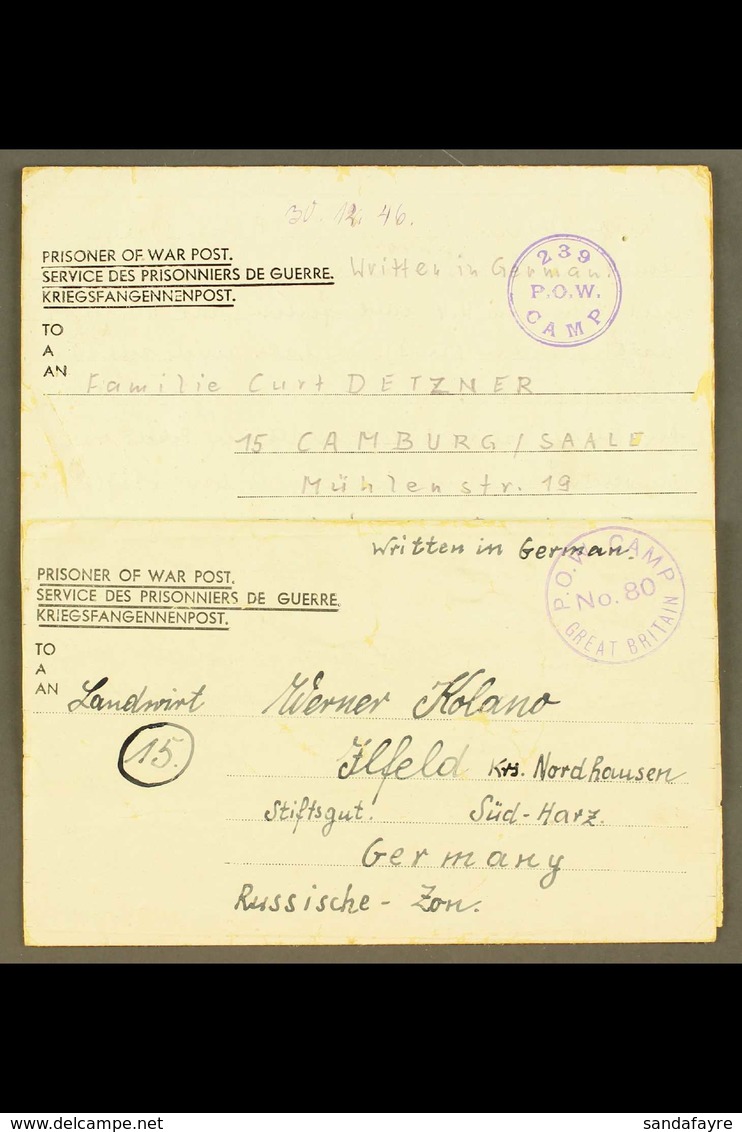 30. 12. 46.
PRISONER OF WAR POST.
SERVICE DES PRISONNIERS DE GUERRE.
KRIEGSFANGENNENPOST.
Written in German.
239
P.O.W.
CAMP
TO
A
AN
Familie Curt DETZNER
15 CAMBURG/SAALE
Mühlenstr. 19
Written in German.
P.O.W. CAMP
No. 80
GREAT BRITAIN
PRISONER OF WAR POST.
SERVICE DES PRISONNIERS DE GUERRE.
KRIEGSFANGENNENPOST.
TO
A
AN
Landwirt Werner Kolano
15.
Ilfeld Krs. Nordhausen
Stiftsgut. Süd-Harz.
Germany
Russische - Zon.
www.delcampe.net
sandafayre